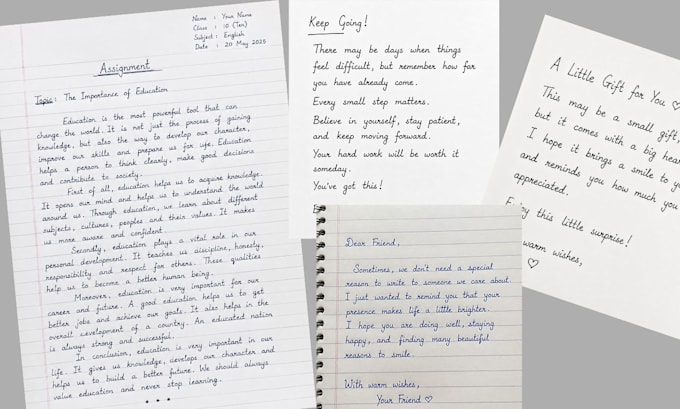 Name : Your Name
Class : 10 (Ten)
Subject : English
Date : 20 May 2025
Assignment
Topic: The Importance of Education
Education is the most powerful tool that can
change the world. It is not just the process of gaining
knowledge, but also the way to develop our character,
improve our skills and prepare us for life. Education
helps a person to think clearly, make good decisions
and contribute to society.
First of all, education helps us to acquire knowledge.
It opens our mind and helps us to understand the world
around us. Through education, we learn about different
subjects, cultures, peoples and their values. It makes
us more aware and confident
Secondly, education plays a vital role in our
personal development. It teaches us discipline, honesty,
responsibility and respect for others. These qualities
help us to become a better human being.
Moreover, education is very important for our
career and future. A good education helps us to get
better jobs and achieve our goals. It also helps in the
overall development of a country. An educated nation
is always strong and successful.
In conclusion, education is very important in our
life. It gives us knowledge, develops our character and
helps us to build a better future. We should always
value education and never stop learning.
Keep Going!
There may be days when things
feel difficult, but remember how far
you have already come.
Every small step matters.
Believe in yourself, stay patient,
and keep moving forward.
Your hard work will be worth it
someday.
You've got this!
Dear Friend,
Sometimes, we don't need a special
reason to write to someone we care about.
I just wanted to remind you that your
presence makes life a little brighter.
I hope you are doing well, staying
happy, and finding many beautiful
reasons to smile.
With warm wishes,
Your Friend ♡
A Little Gift for You ♡
This may be a small gift,
but it comes with a big hear
I hope it brings a smile to yo
and reminds you how much you
appreciated.
this little surprise!
warm wishes,
♡